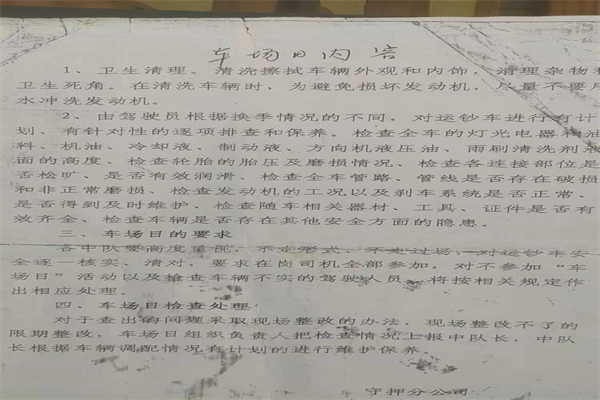 车场日内容
1、卫生清理。清洗擦拭车辆外观和内饰，清理杂物和
卫生死角。在清洗车辆时，为避免损坏发动机，尽量不要用
水冲洗发动机。
2、由驾驶员根据换季情况的不同，对运钞车进行有计
划、有针对性的逐项排查和保养。检查全车的灯光电器和油
料、机油、冷却液、制动液、方向机液压油、雨刷清洗剂液
面的高度、检查轮胎的胎压及磨损情况、检查各连接部位是
否松旷、是否有效润滑、检查全车管路、管线是否存在破损
和非正常磨损、检查发动机的工况以及刹车系统是否正常、
是否得到及时维护、检查随车相关器材、工具、证件是否有
效齐全、检查车辆是否存在其他安全方面的隐患。
三、车场日的要求
各中队要高度重视、不走形式、不走过场、对运钞车安
全逐一核实、清对，要求在岗司机全部参加，对不参加“车
场日”活动以及检查车辆不实的驾驶人员，将按相关规定作
出相应处理。
四、车场日检查处理
对于查出的问题采取现场整改的办法，现场整改不了的
限期整改，车场日组织负责人把检查情况上报中队长，中队
长根据车辆调配情况有计划的进行维护保养。
守押分公司